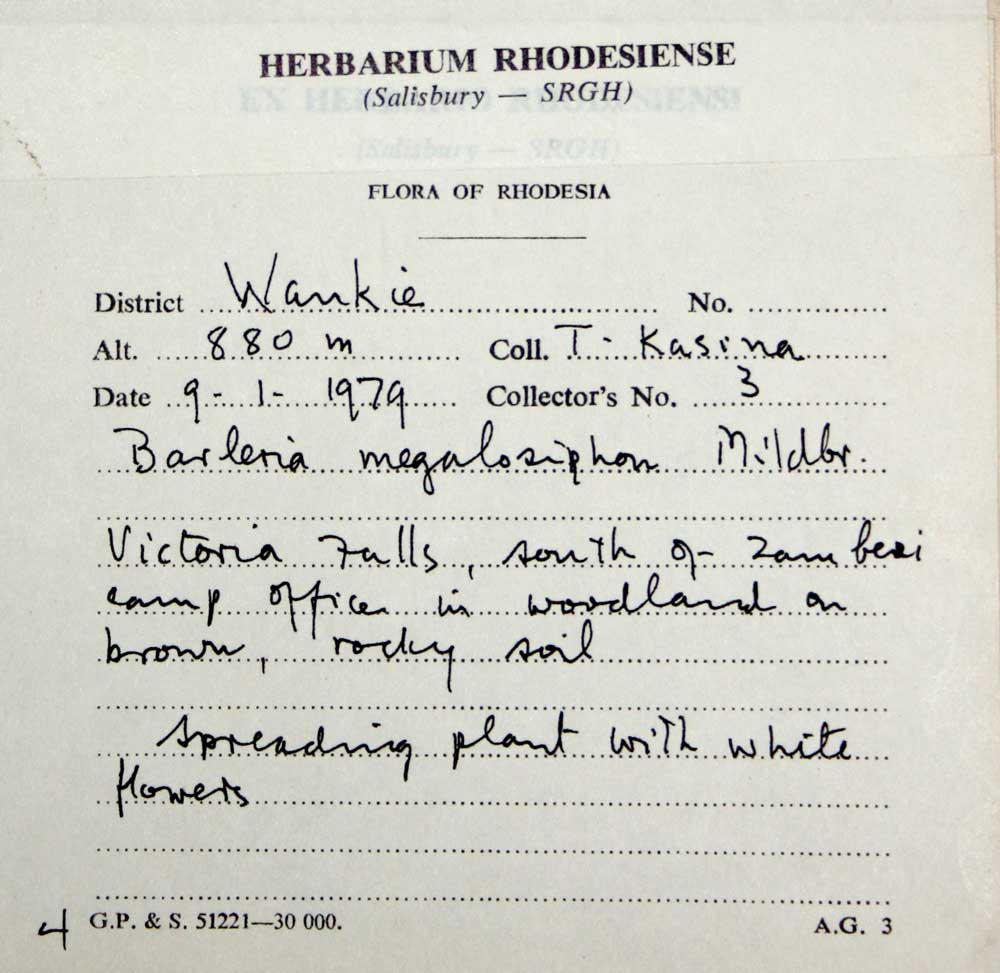 HERBARIUM RHODESIENSE
(Salisbury — SRGH)
EX HERBARIO RHODESIENSI
(Salisbury — SRGH)
FLORA OF RHODESIA
District Wankie No.
Alt. 880 m Coll. T. Kasina
Date 9-1-1979 Collector's No. 3
Barleria megalosiphon Mildbr.
Victoria Falls, south of Zambezi
camp office in woodland on
brown, rocky soil
Spreading plant with white
flowers
4 G.P. & S. 51221—30 000. A.G. 3